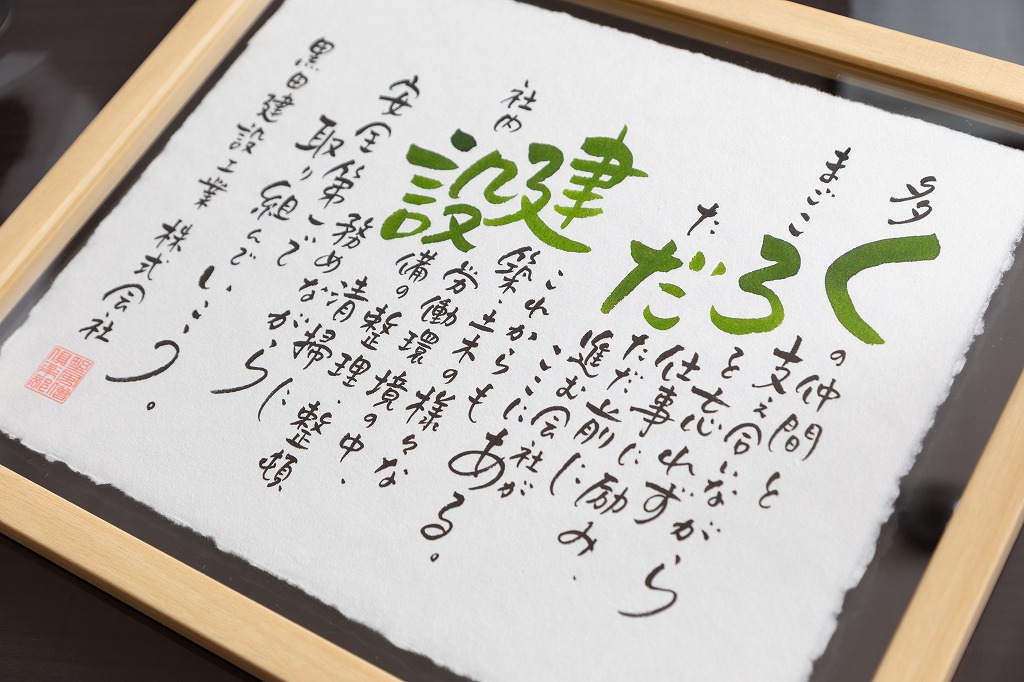 多くの仲間と
支え合いながら
まごころを忘れず
仕事に励み、
ただただ前に
進む会社が
ここに
これからもある。
建築・土木の様々な
労働環境の中、
社内設備の整理・整頓、
清掃に
務めながら
安全第一に
取り組んでいこう。
黒田建設工業 株式会社